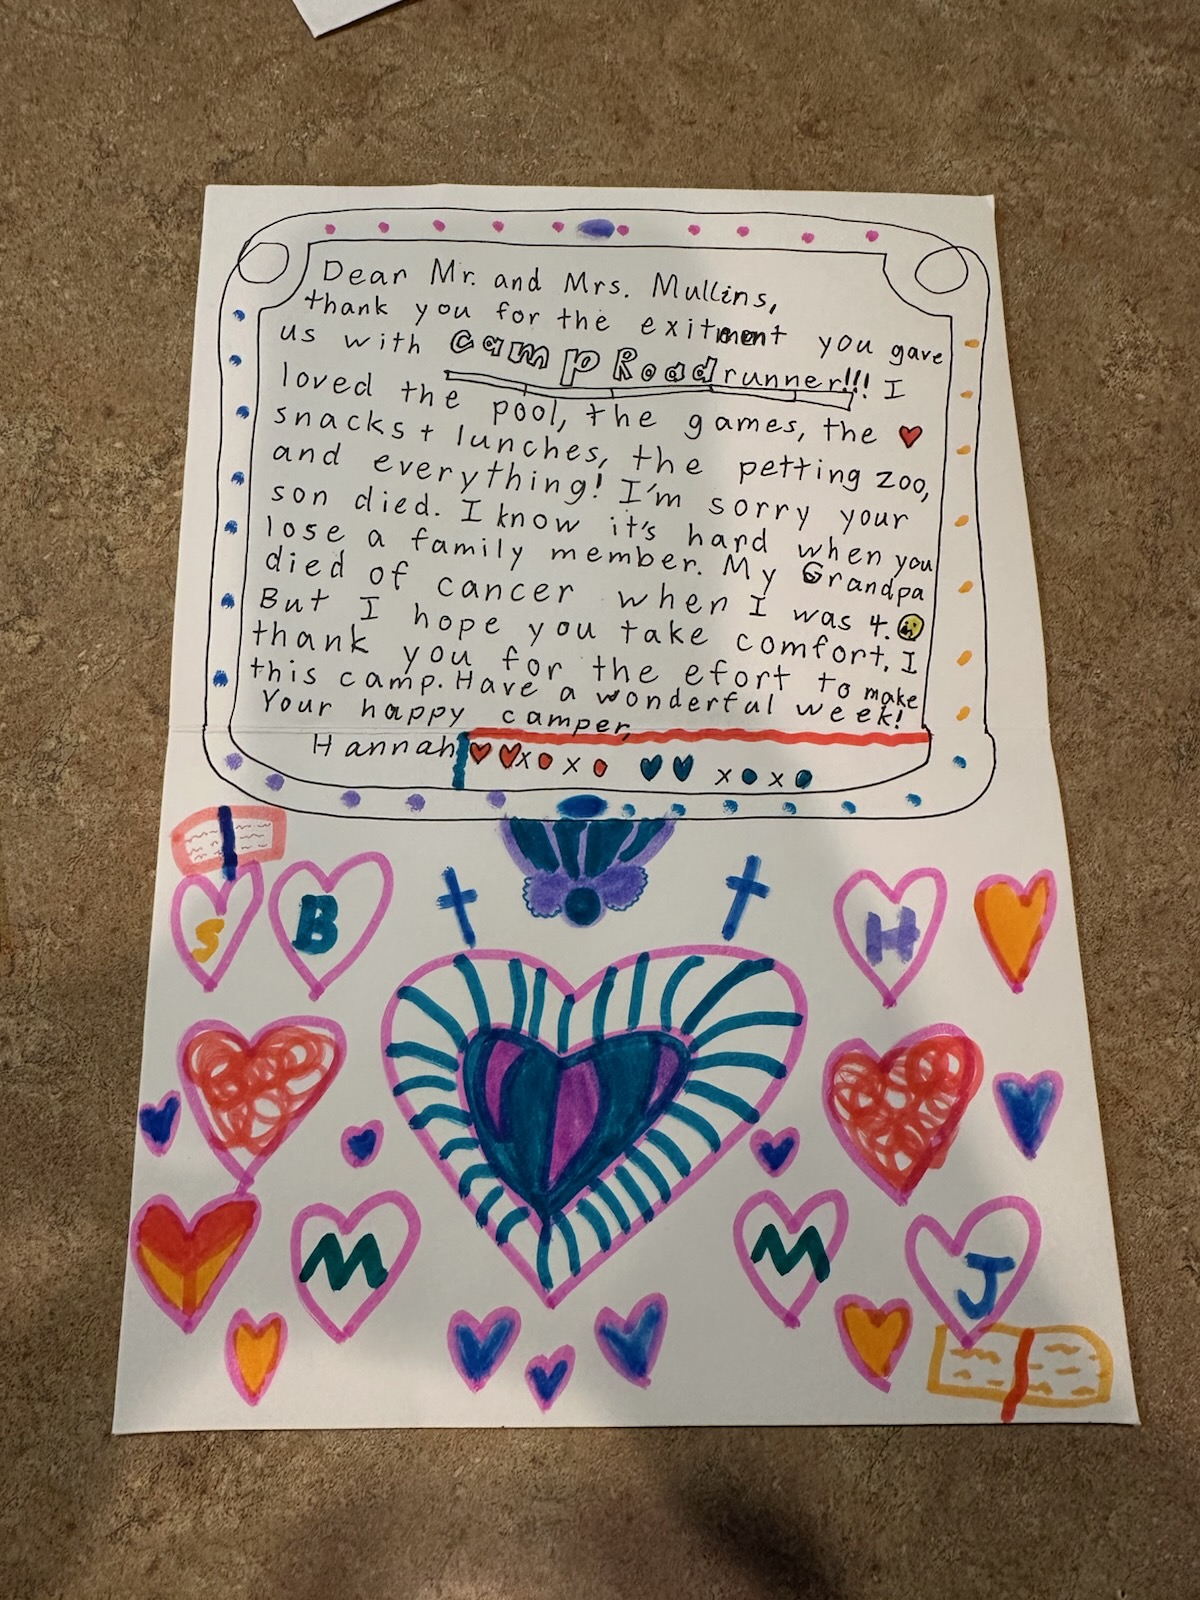 Dear Mr. and Mrs. Mullins,
thank you for the exitment you gave
us with Camp Roadrunner!!! I
loved the pool, the games, the
snacks + lunches, the petting zoo,
and everything! I'm sorry your
son died. I know it's hard when you
lose a family member. My Grandpa
died of cancer when I was 4.
But I hope you take comfort. I
thank you for the efort to make
this camp. Have a wonderful week!
Your happy camper,
Hannah
x o x o x o x o
S B H
M M J